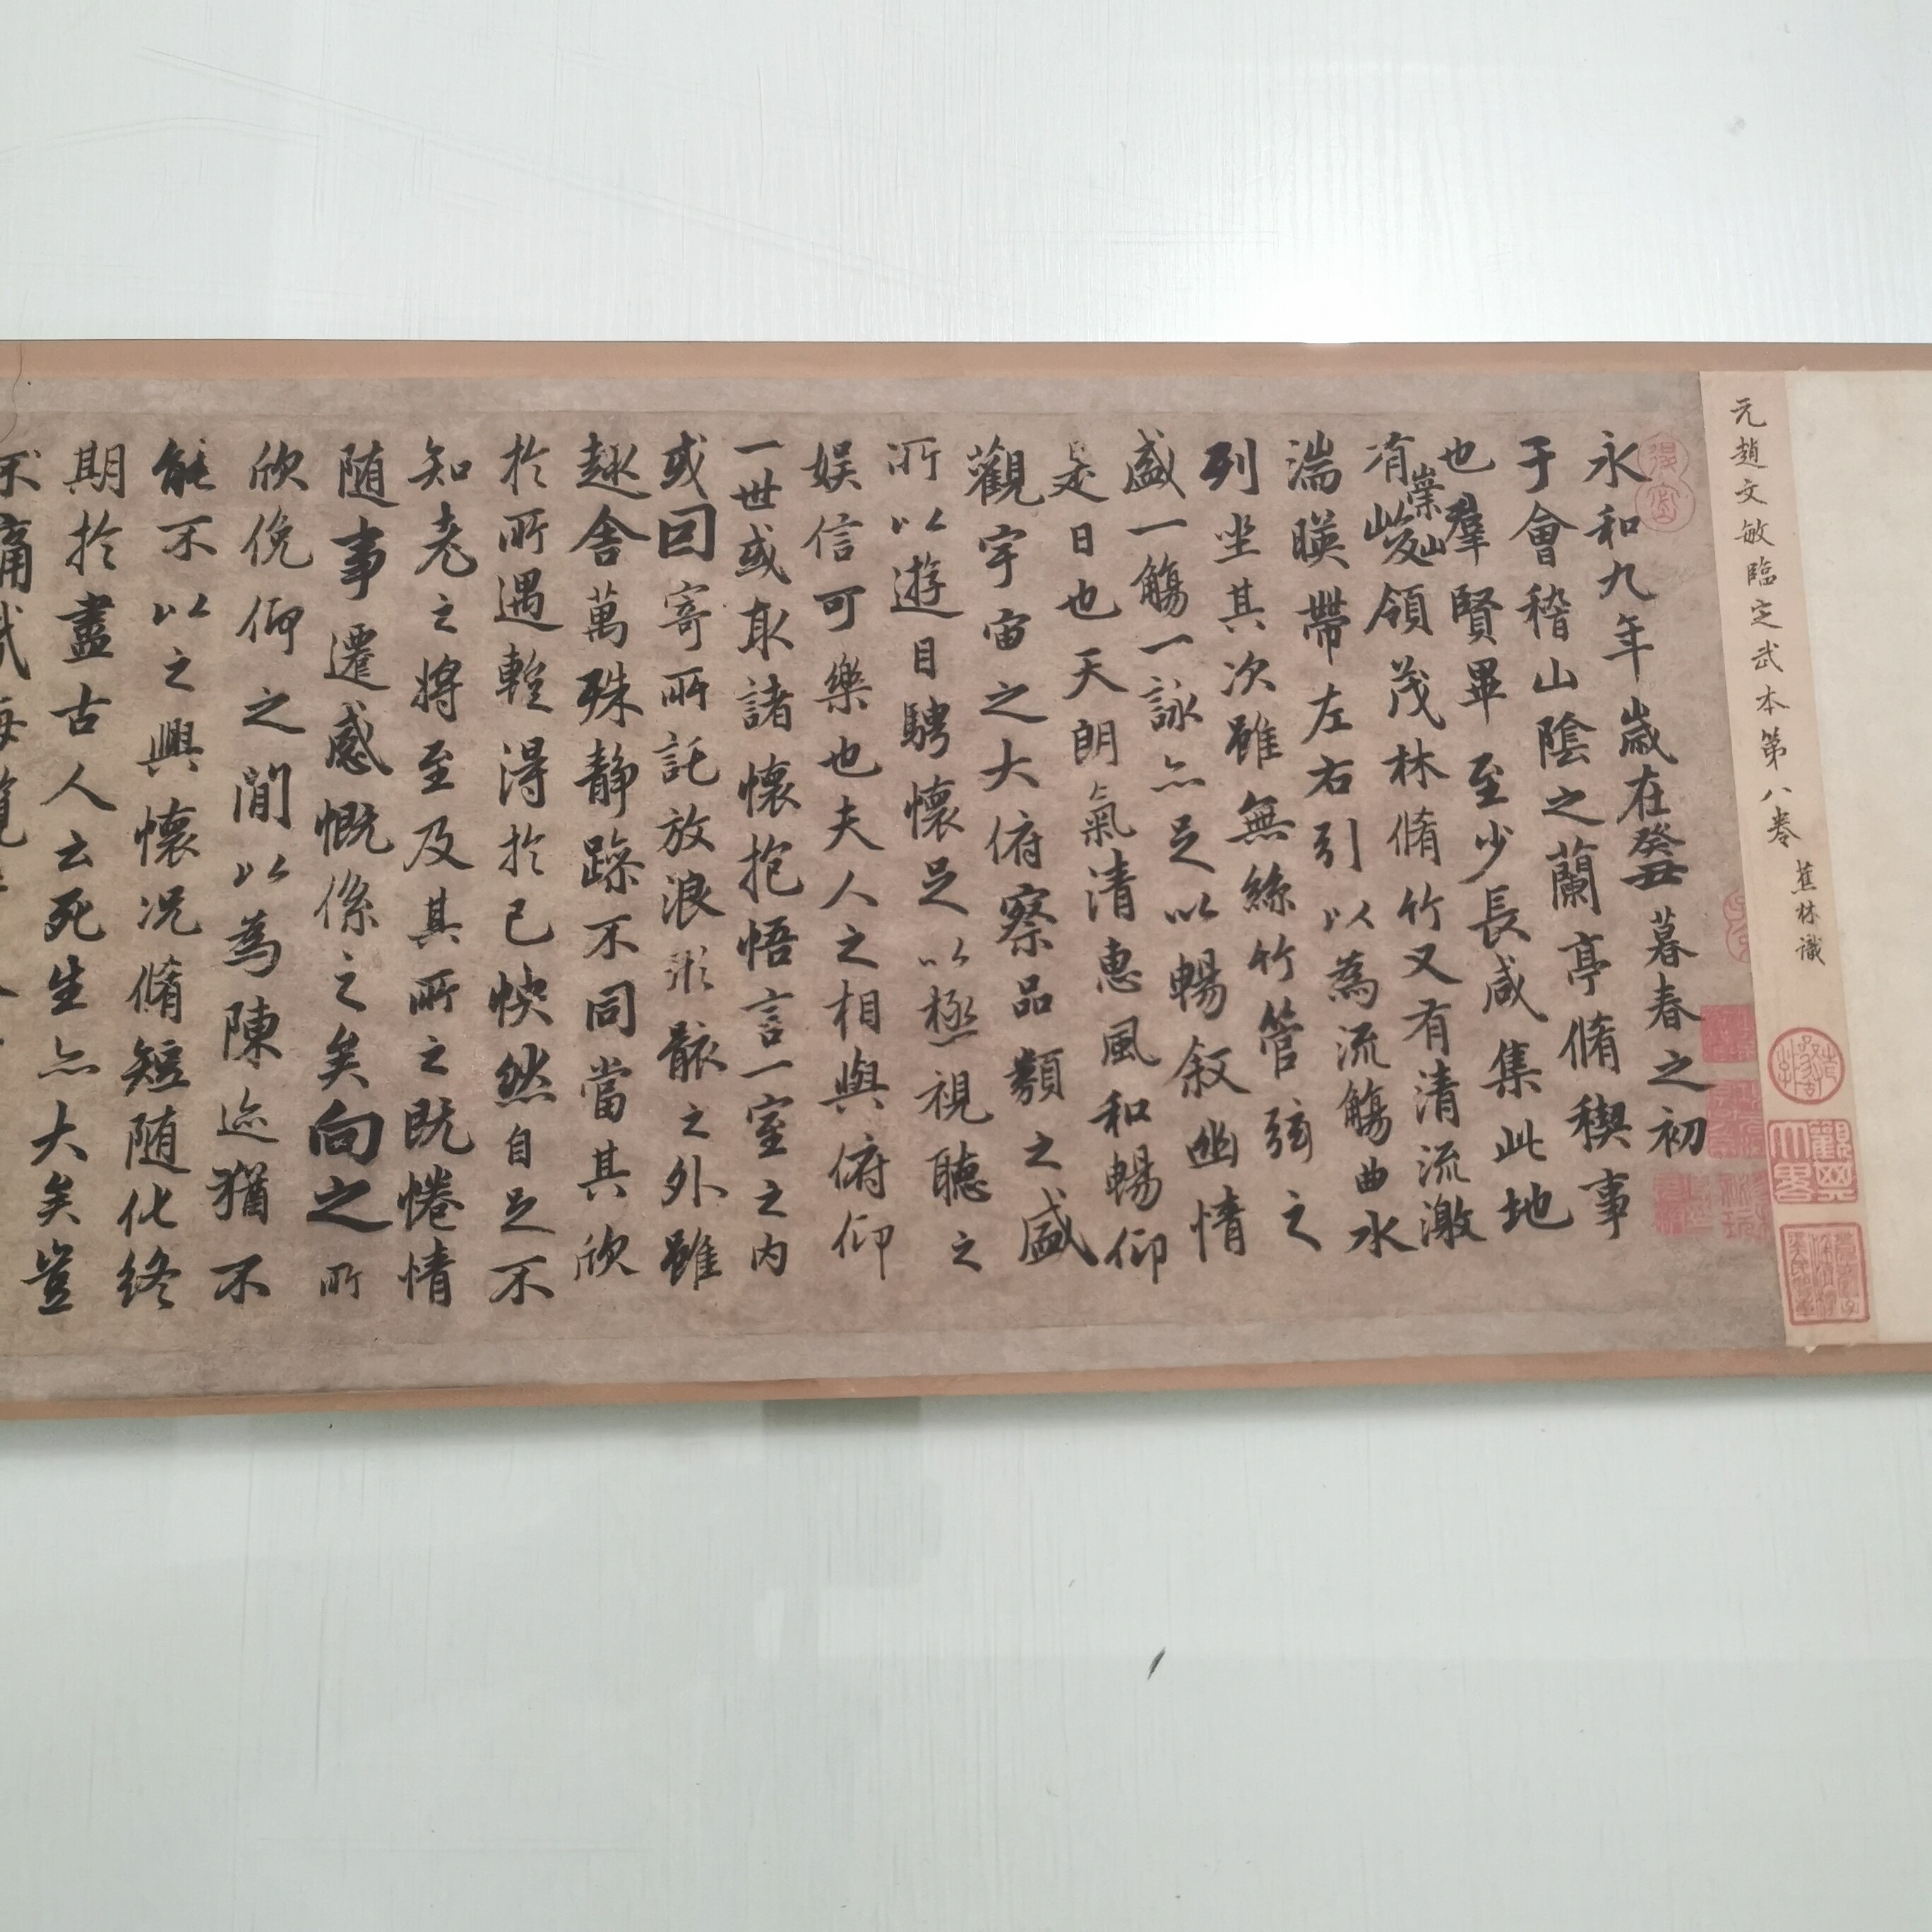 元趙文敏臨定武本第八卷 蕉林識
永和九年歲在癸丑暮春之初
于會稽山陰之蘭亭脩稧事
也羣賢畢至少長咸集此地
有崇山峻領茂林脩竹又有清流激
湍暎帶左右引以為流觴曲水
列坐其次雖無絲竹管弦之
盛一觴一詠亦足以暢叙幽情
是日也天朗氣清惠風和暢仰
觀宇宙之大俯察品類之盛
所以遊目騁懷足以極視聽之
娛信可樂也夫人之相與俯仰
一世或取諸懷抱悟言一室之内
或因寄所託放浪形骸之外雖
趣舍萬殊静躁不同當其欣
於所遇輕得於己怏然自足不
知老之將至及其所之既惓情
随事遷感慨係之矣向之所
欣俛仰之閒以為陳迹猶不
能不以之興懷況脩短随化終
期於盡古人云死生亦大矣豈
不痛哉每覽